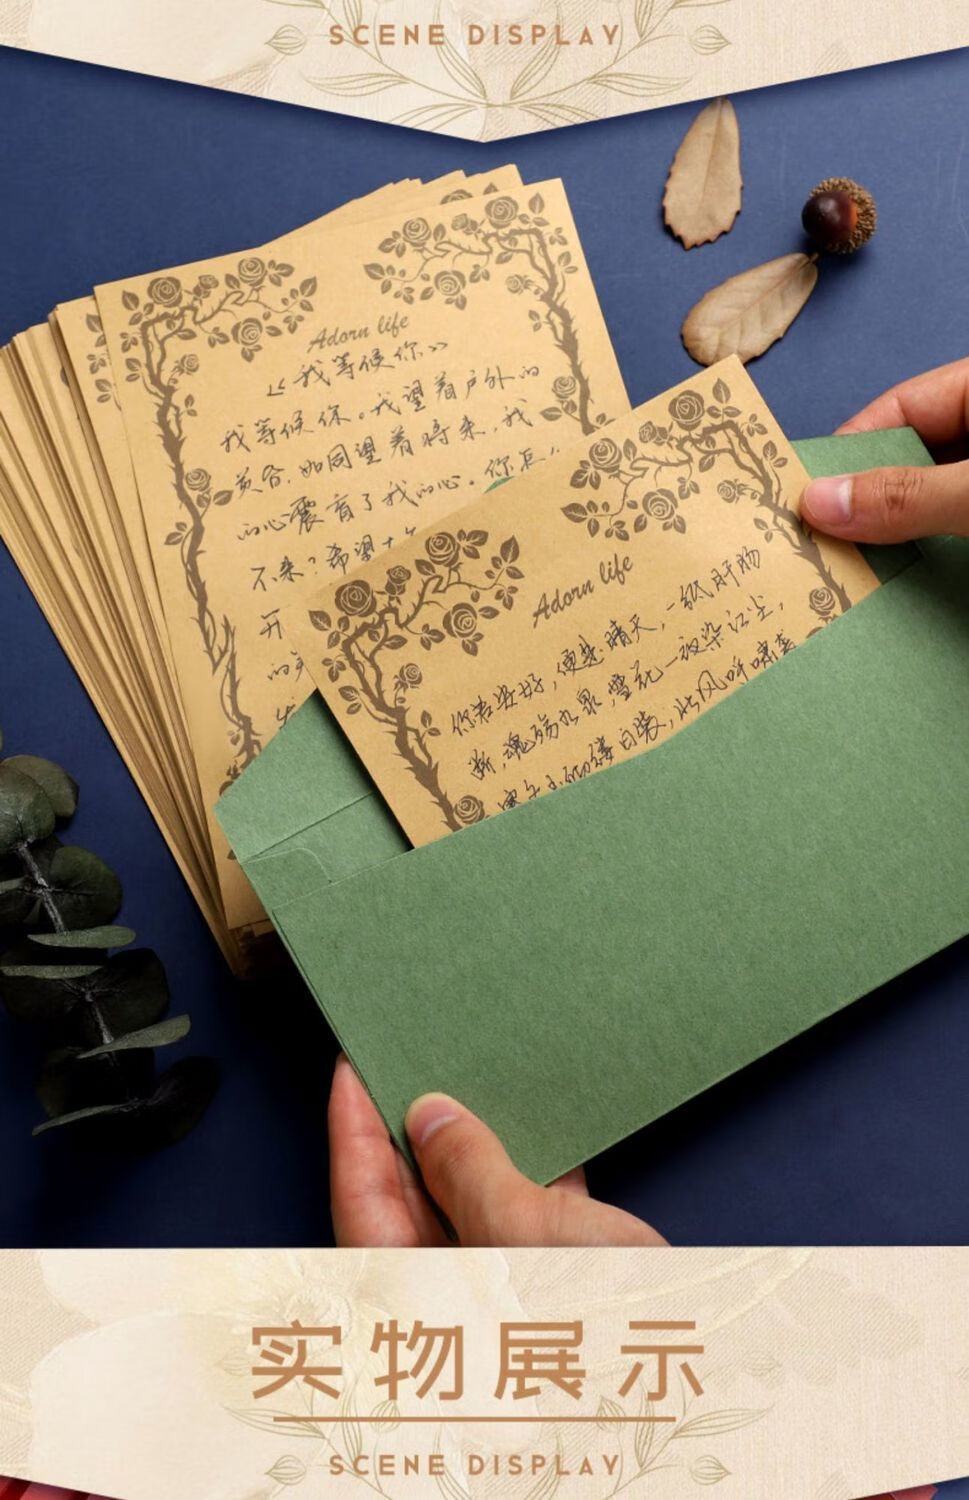 SCENE DISPLAY
Adorn life
《我等候你》
我等候你。我望着户外的
黄昏,如同望着将来,我
的心震盲了我的心。你怎
不来?希望
开
的
Adorn life
你若安好,便是晴天,一纸肝肠
断,魂殇九泉,雪花一议染江尘,
白装,北风吁啸
实物展示
SCENE DISPLAY